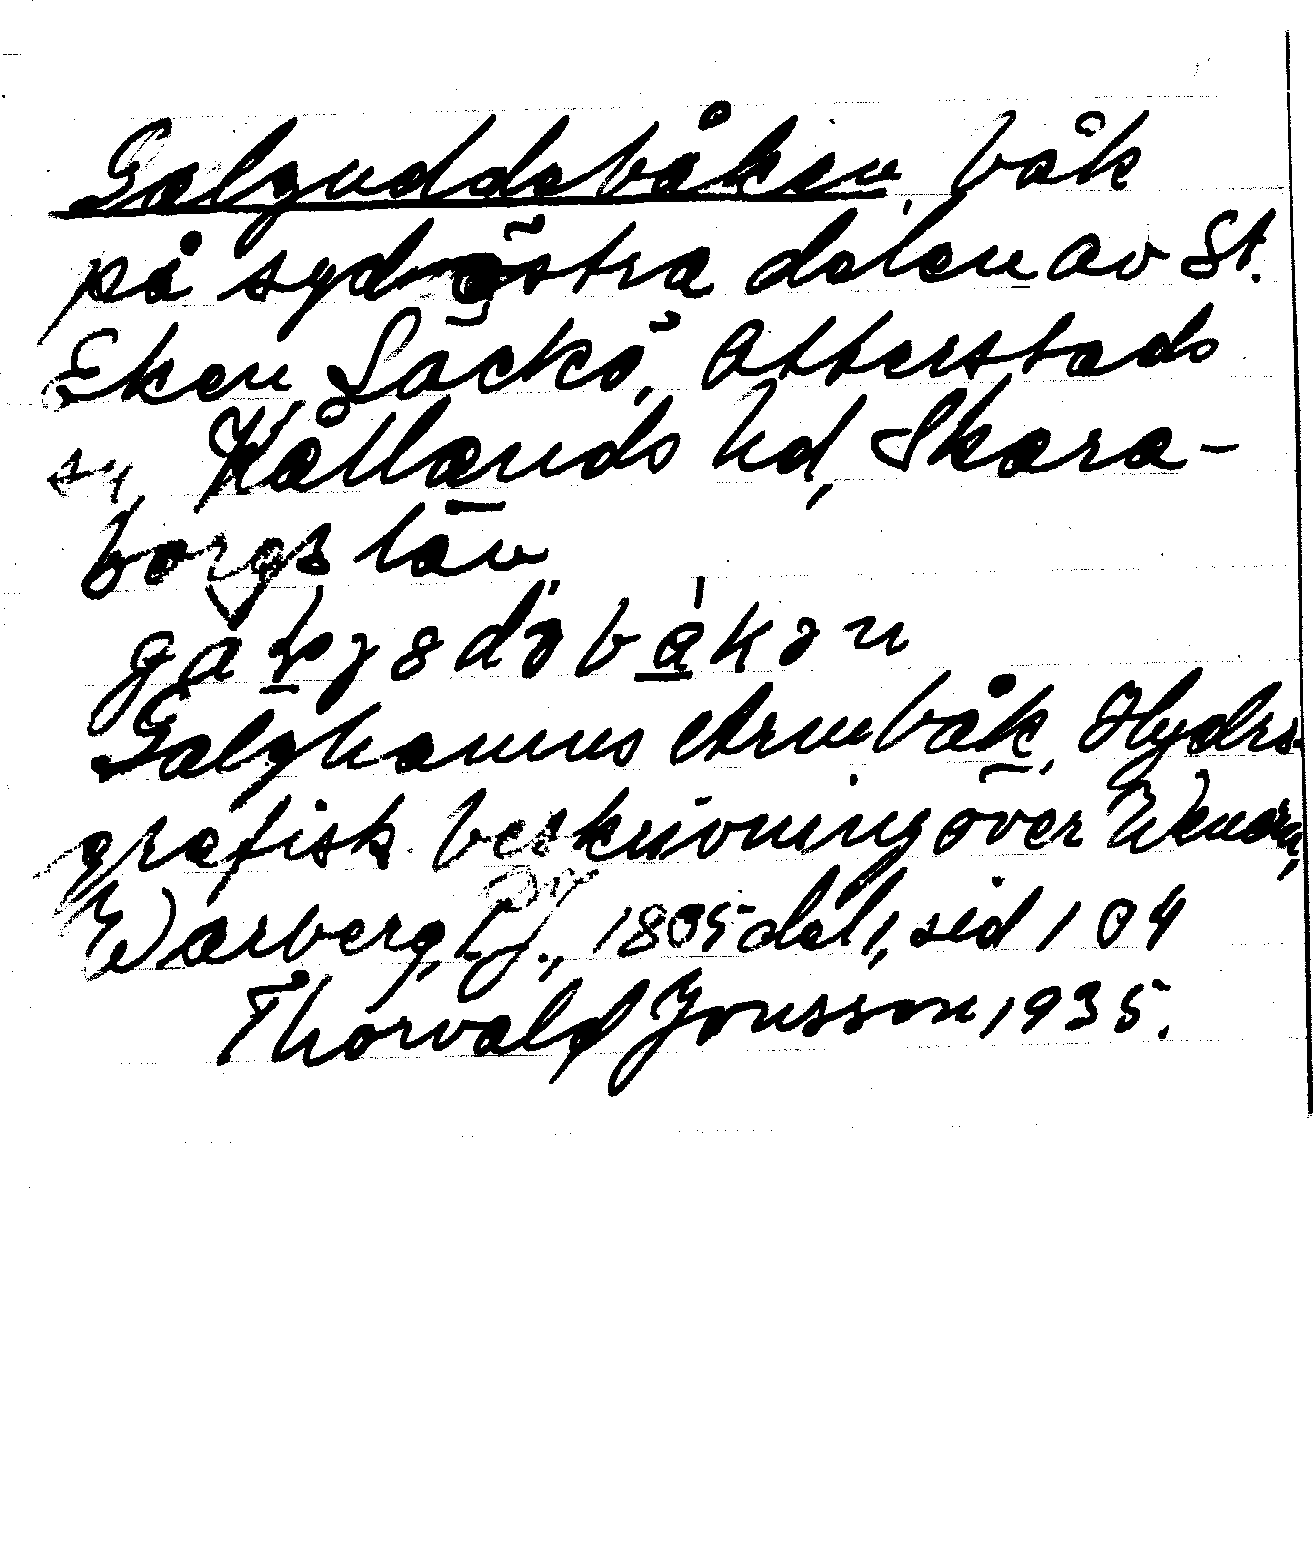 Galguddsbåken, båk
på sydöstra delen av St.
Eken, Läckö, Otterstads
sn, Kållands hd, Skara-
borgs län
Galghamns Armbåk, Hydro-
grafisk beskrivning över Wenern,
Warberg, 1895 del 1, sid 104
Thorvald Jonsson 1935.